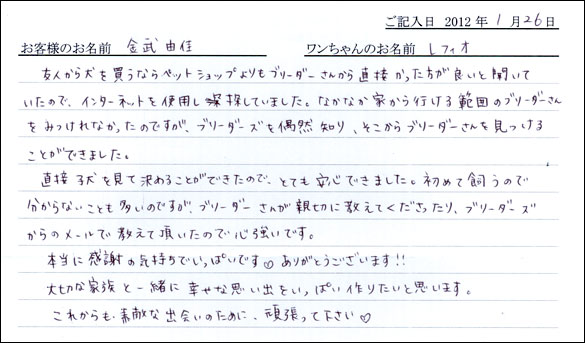 ご記入日 2012年 1月26日
お客様のお名前 金武由佳 ワンちゃんのお名前 レフィオ
友人から犬を買うならペットショップよりもブリーダーさんから直接かった方が良いと聞いて
いたので、インターネットを使用し探していました。なかなか家から行ける範囲のブリーダーさん
をみつけれなかったのですが、ブリーダーズを偶然知り、そこからブリーダーさんを見つける
ことができました。
直接子犬を見て決めることができたので、とても安心できました。初めて飼うので
分からないことも多いのですが、ブリーダーさんが親切に教えてくださったり、ブリーダーズ
からのメールで教えて頂いたので心強いです。
本当に感謝の気持ちでいっぱいです♡ ありがとうございます!!
大切な家族と一緒に幸せな思い出をいっぱい作りたいと思います。
これからも素敵な出会いのために、頑張って下さい♡